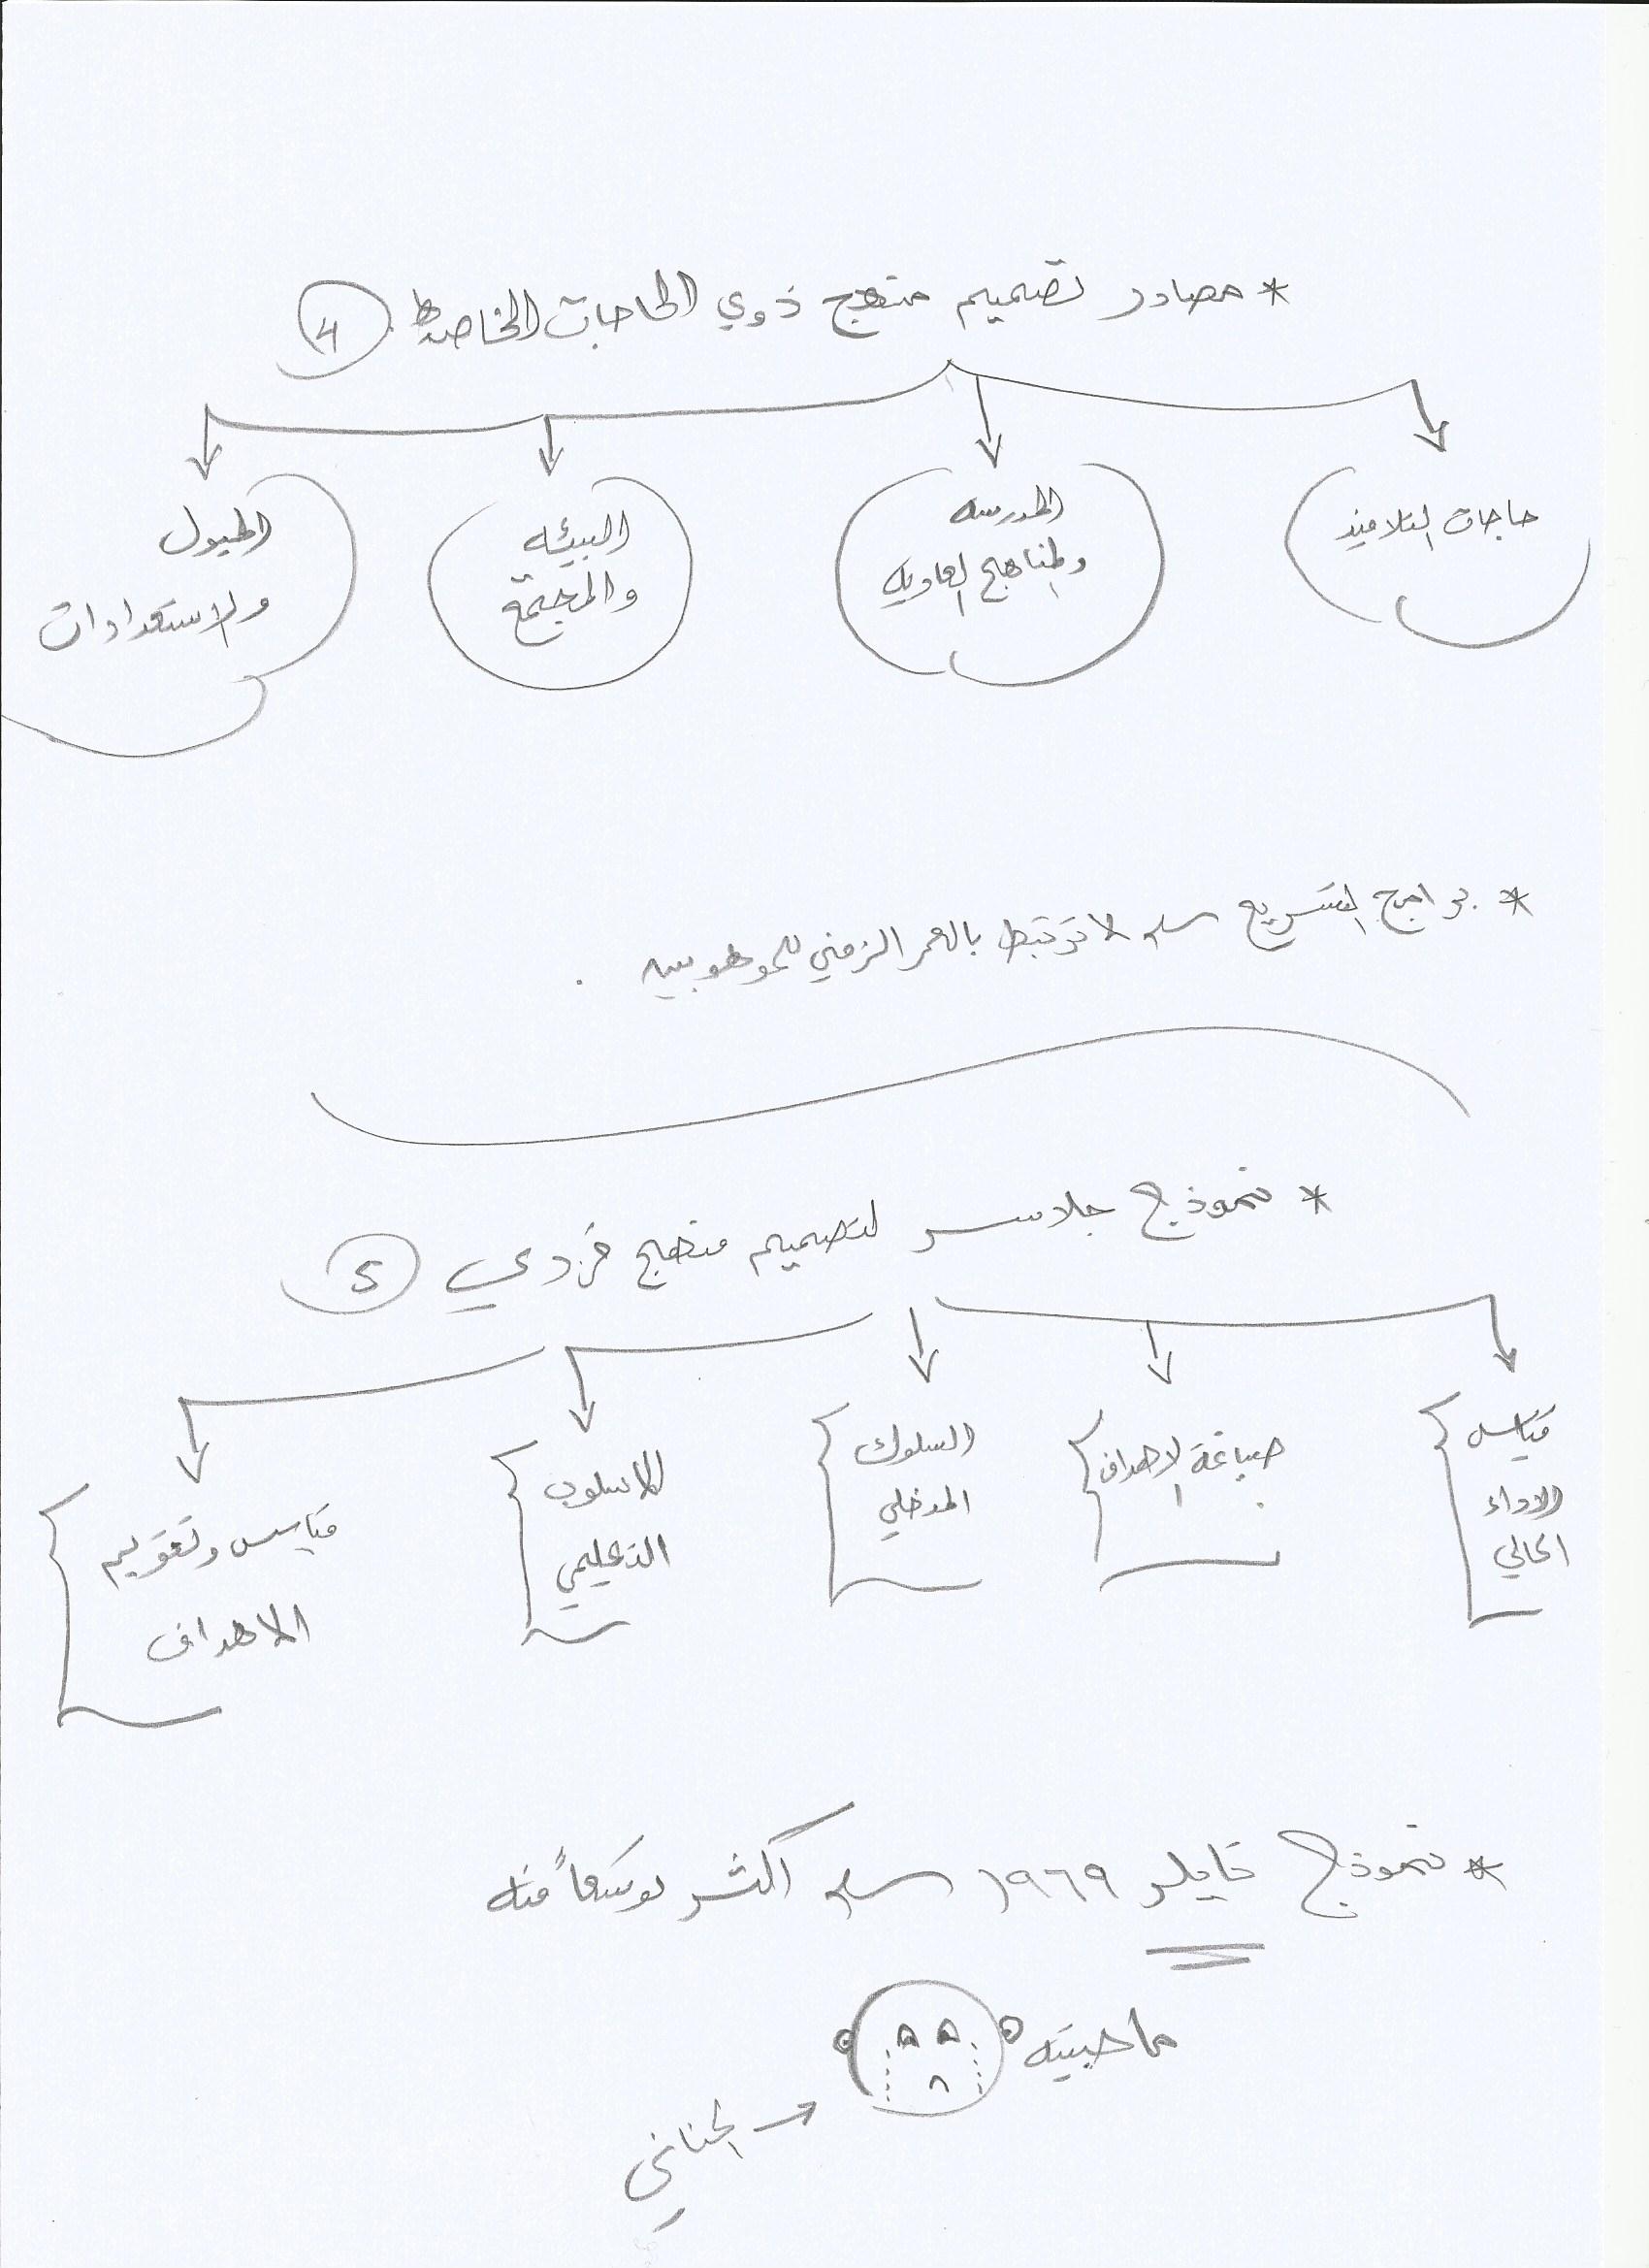 * مصادر تصميم منهج ذوي الحاجات الخاصة . 4
حاجات التلاميذ
المدرسه
والمناهج العاديه
البيئه
والمجتمع
الميول
والاستعدادات
* برامج التسريع لا ترتبط بالعمر الزمني للموهوبين .
* نموذج جلاسر لتصميم منهج فردي 5
قياس
الاداء
الحالي
صياغة الاهداف
السلوك
المدخلي
الاسلوب
التعليمي
قياس وتقويم
الاهداف
* نموذج تايلر ١٩٦٩ أكثر توسعاً منه
ما حبيته